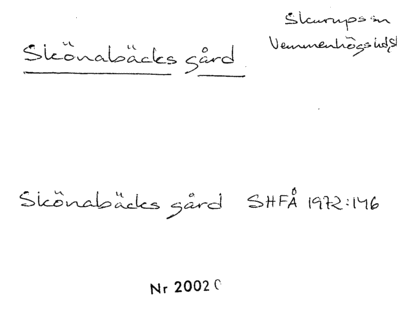 Skurups sn
Vemmenhögs hd, Sk
Skönabäcks gård
Skönabäcks gård SHFÅ 1972:146
Nr 2002